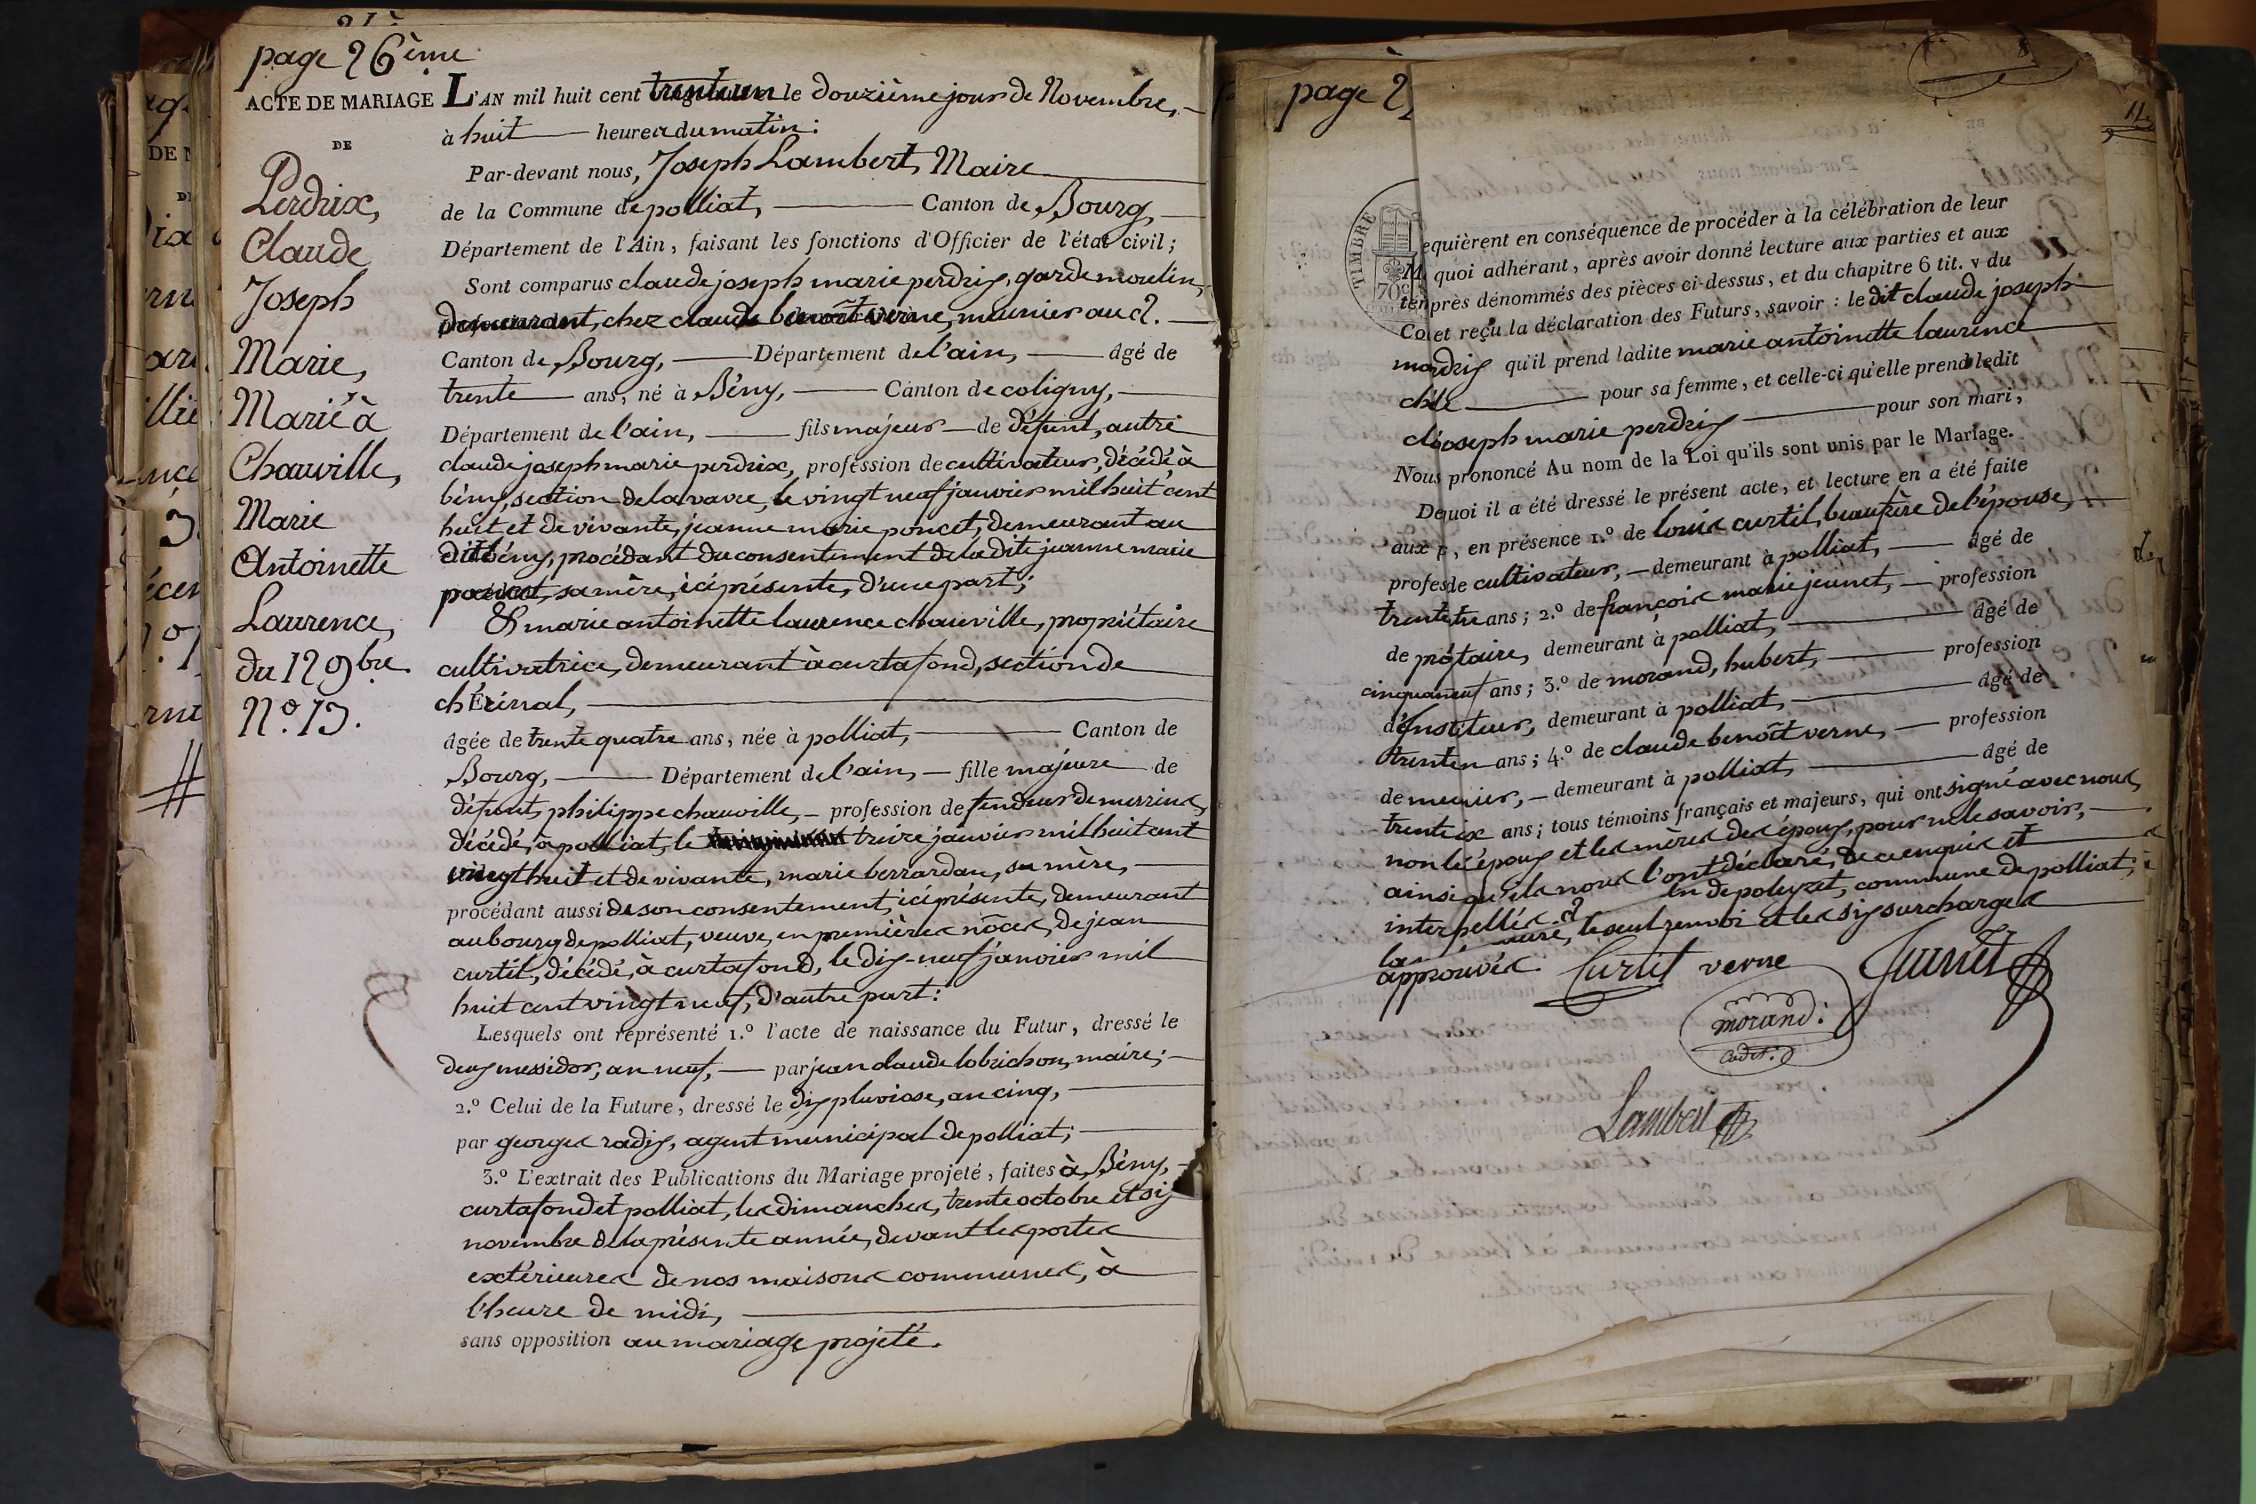 page 26ème
ACTE DE MARIAGE
DE
Perdrix,
Claude
Joseph
Marie,
Marié à
Chauville,
Marie
Antoinette
Laurence,
du 12 9bre
N.º 13.
L'AN mil huit cent trente un le douzième jour de Novembre,
à huit heures du matin:
Par-devant nous, Joseph Lambert, Maire
de la Commune de polliat, Canton de Bourg,
Département de l'Ain, faisant les fonctions d'Officier de l'état civil;
Sont comparus claude joseph marie perdrix, garde moulin,
demeurant, chez claude benoît verne, meunier au
Canton de Bourg, Département de l'ain, âgé de
trente ans, né à Bény, Canton de coligny,
Département de l'ain, fils majeur de défunt, autre
claude joseph marie perdrix, profession de cultivateur, décédé à
bény, section de lavavre, le vingt neuf janvier mil huit cent
huit et de vivante, jeanne marie poncet, demeurant au
dit bény, procédant du consentement de la dite jeanne marie
poncet, sa mère, ici présente, d'une part;
Et marie antoinette laurence chauville, propriétaire
cultivatrice, demeurant à curtafond, section de
chÉrinal,
âgée de trente quatre ans, née à polliat, Canton de
Bourg, Département de l'ain, fille majeure de
défunt, philippe chauville, profession de fendeur de merrins,
décédé, à polliat, le treize janvier mil huit cent
vingt huit et de vivante, marie berrardan, sa mère,
procédant aussi de son consentement, ici présente, demeurant
au bourg de polliat, veuve, en premières nôces, de jean
curtil, décédé, à curtafond, le dix-neuf janvier mil
huit cent vingt neuf, d'autre part:
Lesquels ont représenté 1.º l'acte de naissance du Futur, dressé le
deux messidor, an neuf, par jean claude lobrichon, maire;
2.º Celui de la Future, dressé le dix pluviose, an cinq,
par georges radix, agent municipal de polliat;
3.º L'extrait des Publications du Mariage projeté, faites à Bény,
curtafond et polliat, les dimanches, trente octobre et six
novembre de la présente année, devant les portes
extérieures de nos maisons communes, à
l'heure de midi,
sans opposition au mariage projeté.
page 2
TIMBRE
70
equièrent en conséquence de procéder à la célébration de leur
M quoi adhérant, après avoir donné lecture aux parties et aux
tén près dénommés des pièces ci-dessus, et du chapitre 6 tit. v du
Co et reçu la déclaration des Futurs, savoir: le dit claude joseph
ma drix qu'il prend ladite marie antoinette laurence
ch le pour sa femme, et celle-ci qu'elle prend ledit
cl joseph marie perdrix pour son mari,
Nous prononcé Au nom de la Loi qu'ils sont unis par le Mariage.
De quoi il a été dressé le présent acte, et lecture en a été faite
aux p , en présence 1.º de louis curtil, beaufrère de l'épouse,
profes de cultivateur, demeurant à polliat, âgé de
trente tre ans; 2.º de françois marie jeunet, profession
de p otaire, demeurant à polliat, âgé de
cinqua neuf ans; 3.º de morand, hubert, profession
d' Instituteur, demeurant à polliat, âgé de
trente n ans; 4.º de claude benoît verne, profession
de meunier, demeurant à polliat, âgé de
trente ix ans; tous témoins français et majeurs, qui ont signé avec nous,
non les époux et les mères des époux, pour ne le savoir,
ainsi qu'ils nous l'ont déclaré, de ce enquis et
interpellés. in de polezet, commune de polliat,
la ure, le seul renvoi et les six surcharges
approuvés. Curtil verne Jeunet
morand:
cadet:
Lambert